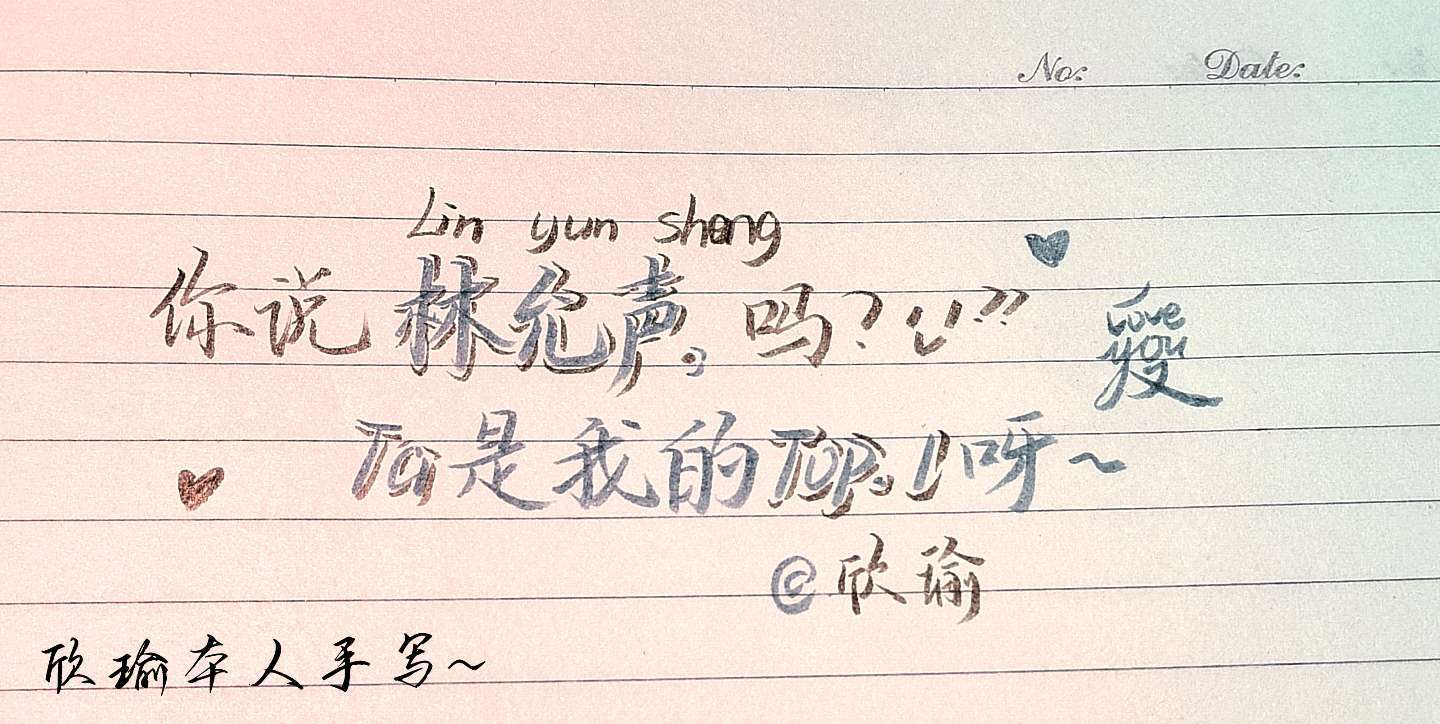 No: Date:
Lin yun sheng
你说林允声。吗？
love
you
Ta是我的TOP.1呀~
@欣瑜
欣瑜本人手写~